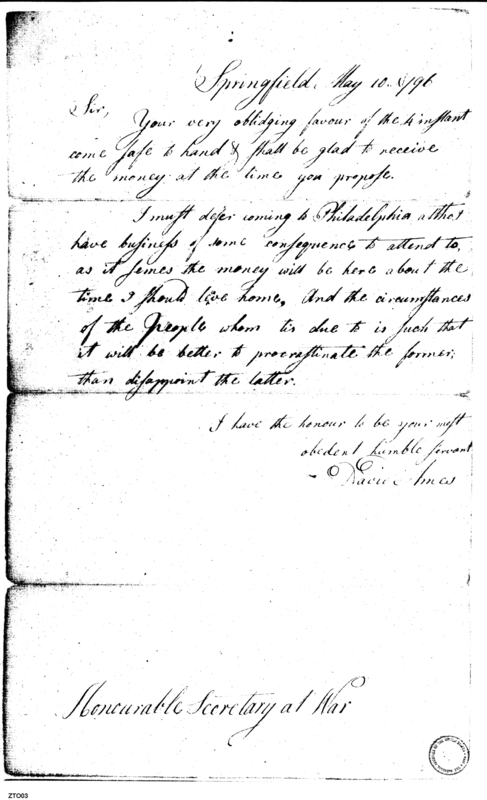 Springfield. May 10. 1796
Sir,
Your very oblidging favour of the 4 instant
come safe to hand & shall be glad to receive
the money at the time you propose.
I must defer coming to Philadelphia altho I
have business of some consequence to attend to,
as it semes the money will be here about the
time I should leve home. And the circumstances
of the People whom tis due to is such that
it will be better to procrastinate the former,
than disappoint the latter.
I have the honour to be your most
obedent humble servant
David Ames
Honourable Secretary at War
ZTO03